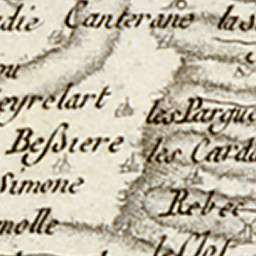 die Canterane las
ou
eyrelart
les Pargue
Beſsiere
les Carda
Simone
Rebec
nolle